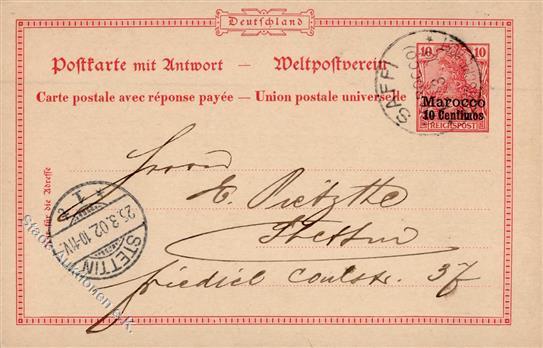 Deutschland
Postkarte mit Antwort — Weltpostverein
Carte postale avec réponse payée — Union postale universelle
10 10
Marocco
10 Centimos
REICHSPOST
SAFFI
Nur für die Adresse
Herrn
E.
Stettin
37
STETTIN
25.3.02. 10-11V.
* 1 *